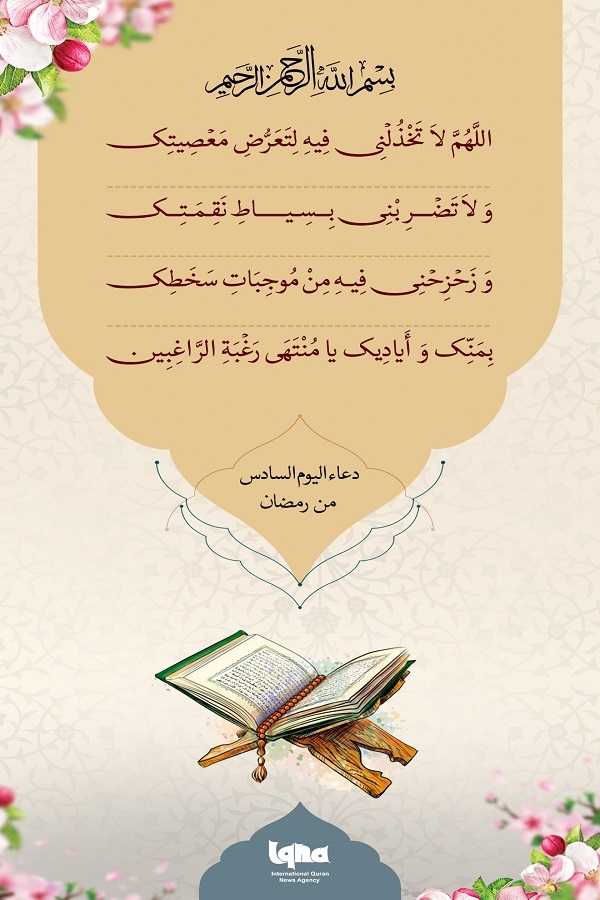 بِسْمِ اللَّهِ الرَّحْمَنِ الرَّحِيمِ
اللَّهُمَّ لاَ تَخْذُلْنِی فِیهِ لِتَعَرُّضِ مَعْصِیَتِکَ
وَ لاَ تَضْرِبْنِی بِسِیَاطِ نَقِمَتِکَ
وَ زَحْزِحْنِی فِیهِ مِنْ مُوجِبَاتِ سَخَطِکَ
بِمَنِّکَ وَ أَیادِیکَ یا مُنْتَهَى رَغْبَةِ الرَّاغِبِین
دعاء اليوم السادس
من رمضان
Iqna
International Quran
News Agency